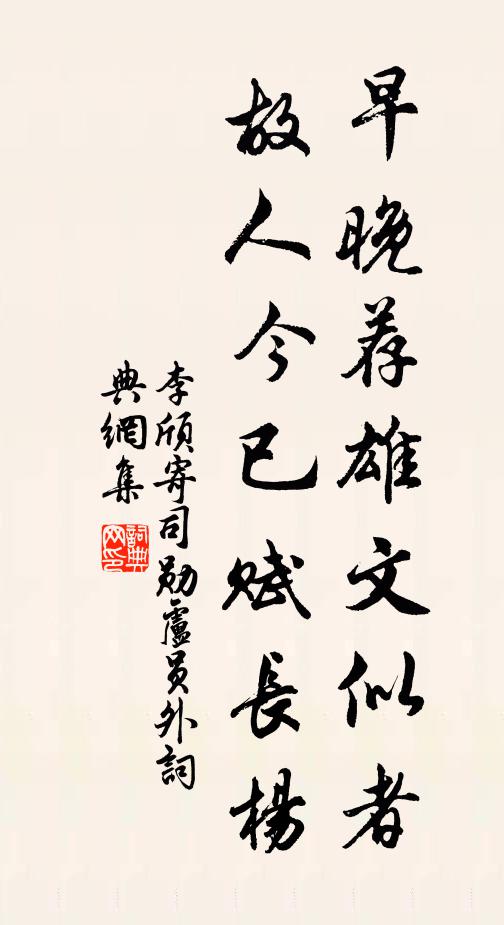 早晚荐雄文似者
故人今已赋長楊
李頎寄司勋盧員外詞
典網集
詞典网印